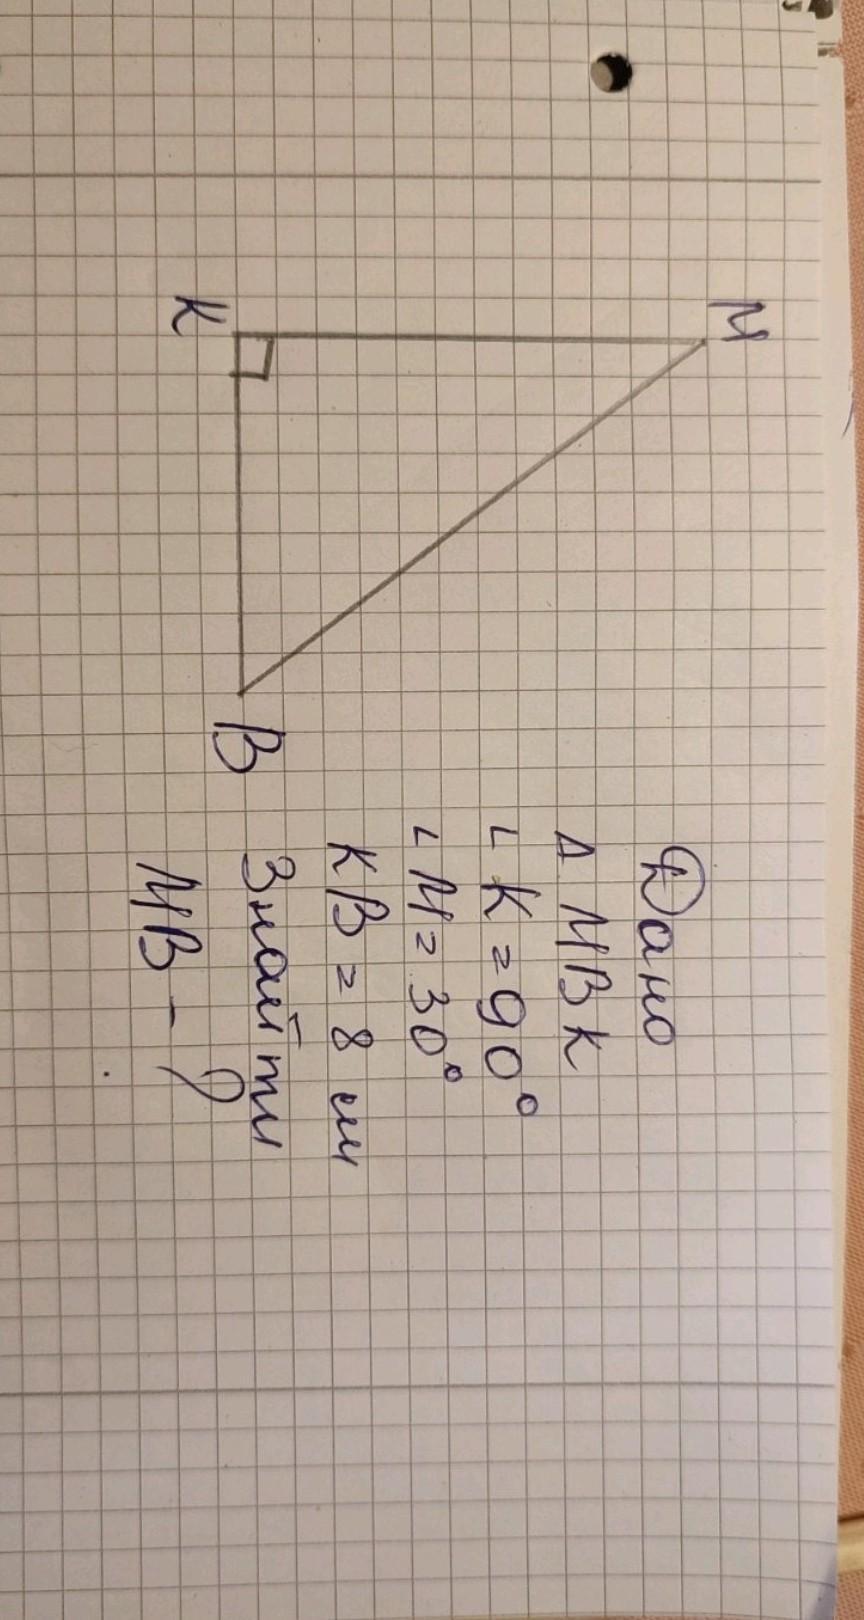 M
K
B
Дано
Δ MBK
∟K=90°
∟M=30°
KB=8 см
Знайти
MB-?